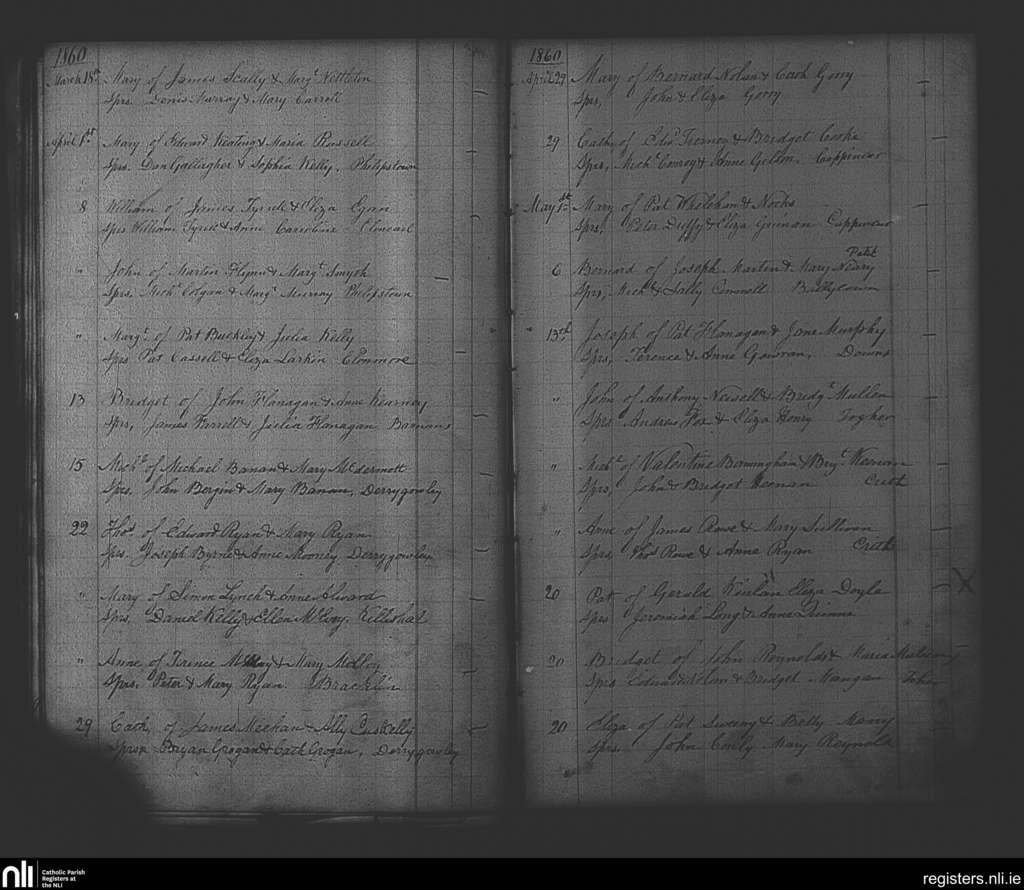 1860
March 18th Mary of James Scally & Margt Nettleton
Sprs. Denis Murray & Mary Carroll
April 1st Mary of Edward Keating & Maria Russell
Sprs. Dan Gallagher & Sophia Kelly, Philipstown
8 William of James Tyrell & Eliza Egan
Sprs William Tyrell & Anne Carroline
" John of Martin Flynn & Margt Smyth
Sprs. Michl Colgan & Margt Murray Philipstown
" Margt of Pat Buckley & Julia Kelly
Sprs Pat Cassell & Eliza Larkin Clonmore
13 Bridget of John Flanagan & Anne Kearney
Sprs, James Farrell & Julia Flanagan
15 Michl of Michael Banan & Mary McDermott
Sprs. John Bergin & Mary Banan, Derrygowley
22 Thos of Edward Ryan & Mary Ryan
Sprs. Joseph Byrne & Anne Mooney Derrygowlan
" Mary of Simon Lynch & Anne
Sprs. Daniel Kelly & Ellen McEvoy, Killishal
" Anne of Terence & Mary Molloy
Sprs, Peter & Mary Ryan. Bracklin
29 Cath, of James Meehan & Ally
Sprs. Bryan Grogan & Cath Grogan, Derrygowley
1860
April 29 Mary of Bernard Nolan & Cath Gorry
Sprs, John & Eliza Gorry
29 Cath, of Edwd Tierney & Bridget Cooke
Sprs, Michl Conroy & Anne
May 1st Mary of Pat Whelehan &
Sprs, Peter Duffy & Eliza Guinan
6 Bernard of Joseph Martin & Mary Neary
Sprs, Michl & Sally Connell
" 13th Joseph of Pat Flanagan & Jane Murphy
Sprs, Terence & Anne Downs
" John of Anthony & Bridgt Mullen
Sprs. Andrew Fox & Eliza Henry Togher
" Michl of Valentine Bermingham & Bridgt
Sprs, John & Bridget Heenan
" Anne of James Rowe & Mary Sullivan
Sprs, Thos Rowe & Anne Ryan
20 Pat of Gerald Eliza Doyle
Sprs Jeremiah Long & Anne Quinne
20 Bridget of John Reynolds & Maria
Sprs Edward Nolan & Bridget Mangan
20 Eliza of Pat Sweeny & Betty
Sprs. John Mary Reynolds
nli
Catholic Parish
Registers at
the NLI
registers.nli.ie